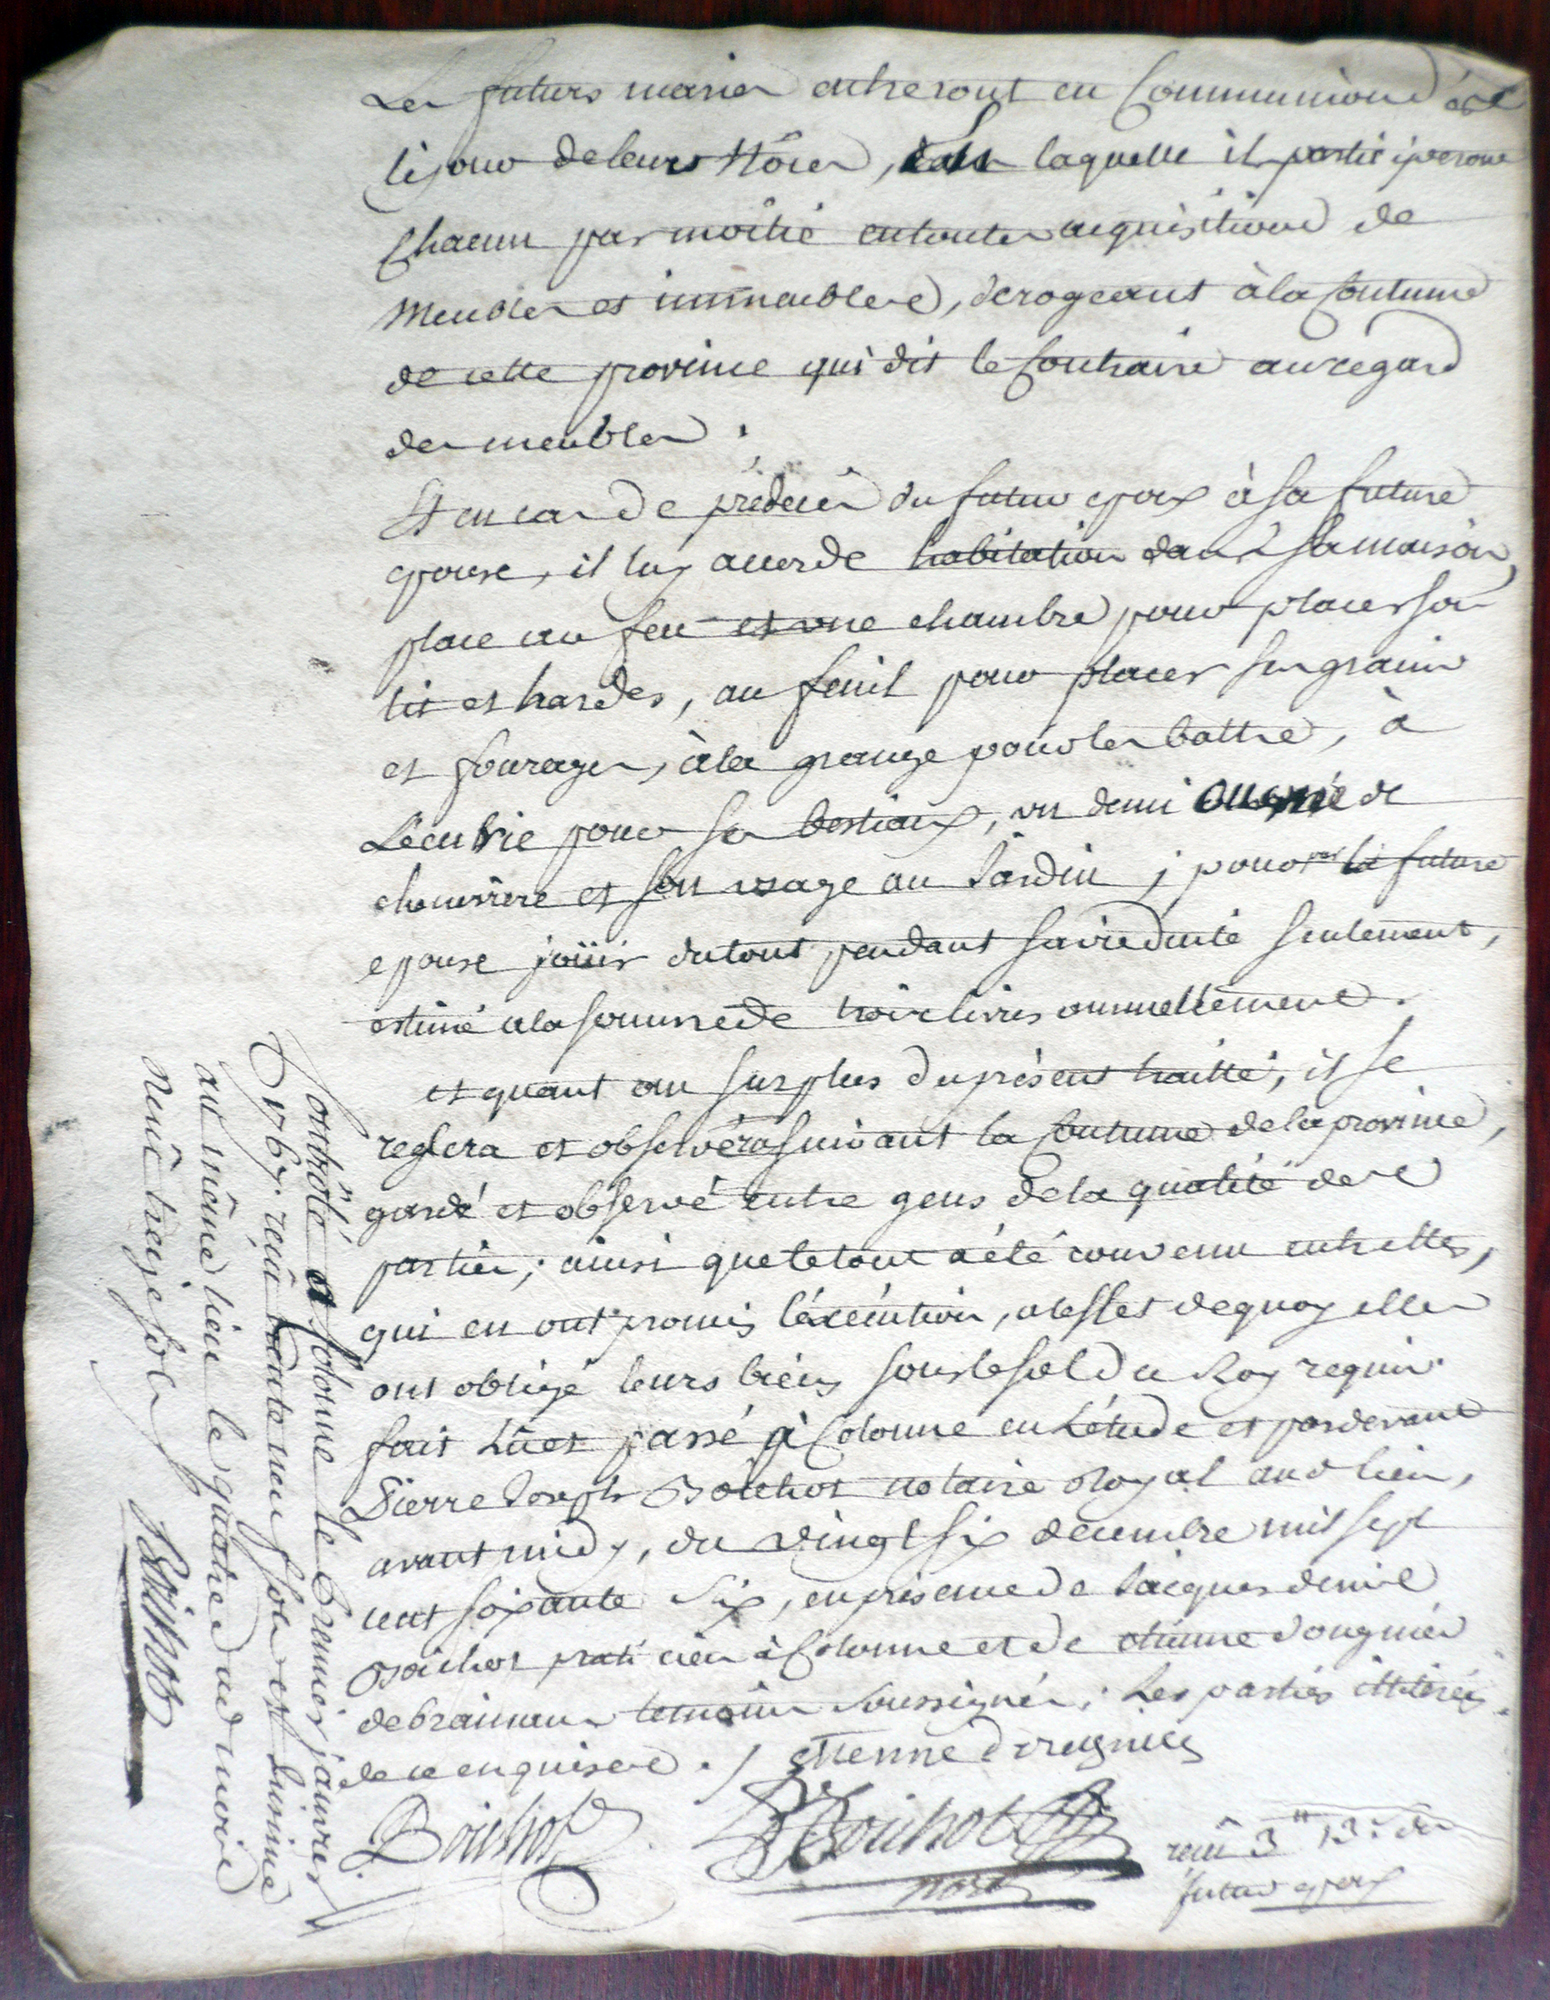 Les futurs mariés entreront en Communion dès
le jour de leurs Nôces, dans laquelle ils participerons
Chacun par moitié en toutes acquisitions de
Meubles et immeubles, derogeants à la Coutume
de cette province qui dit le Contraire au regard
des meubles ;
Et en cas de prédecès du futur epoux à sa future
epouse, il luy accorde habitation dans sa maison,
place au feu et une chambre pour placer son
lit et hardes, au fenil pour placer ses grains
et fourages, à la grange pour les battre, à
L'ecurie pour ses bestiaux, un demi de
cheneviere et son usage au Jardin ; pour par la future
epouse joüir du tout pendant sa viduité seulement,
estimé a la somme de trois livres annuellement.
et quant au surplus du présent traitté, il se
reglera et observera suivant la Coutume de la province,
gardé et observé entre gens de la qualité des
parties ; ainsi que le tout a été convenu entre elles,
qui en ont promis l'éxécution, a l'effet de quoy elles
ont obligé leurs biens sous le scel du Roy requis
fait Lû et passé à Colonne en L'étude et pardevant
Pierre Joseph Boichot notaire Royal aud lieu,
avant midy, du vingt six decembre mil sept
cent soixante six, en présence de Jacques denis
Boichot praticien à Colonne et de etienne dougnier
de brainans temoins soussignés ; Les parties illitérées
de ce enquises. /. etienne dougnier
Boichot
Boichot
notre
reçu 3 " 13 s du
futur epoux
Contrôlé a Colonne le Premier janvier
1767. reçu trente neuf sols et insinué
au même lieu le quatre dud mois
reçu treize sols Boichot